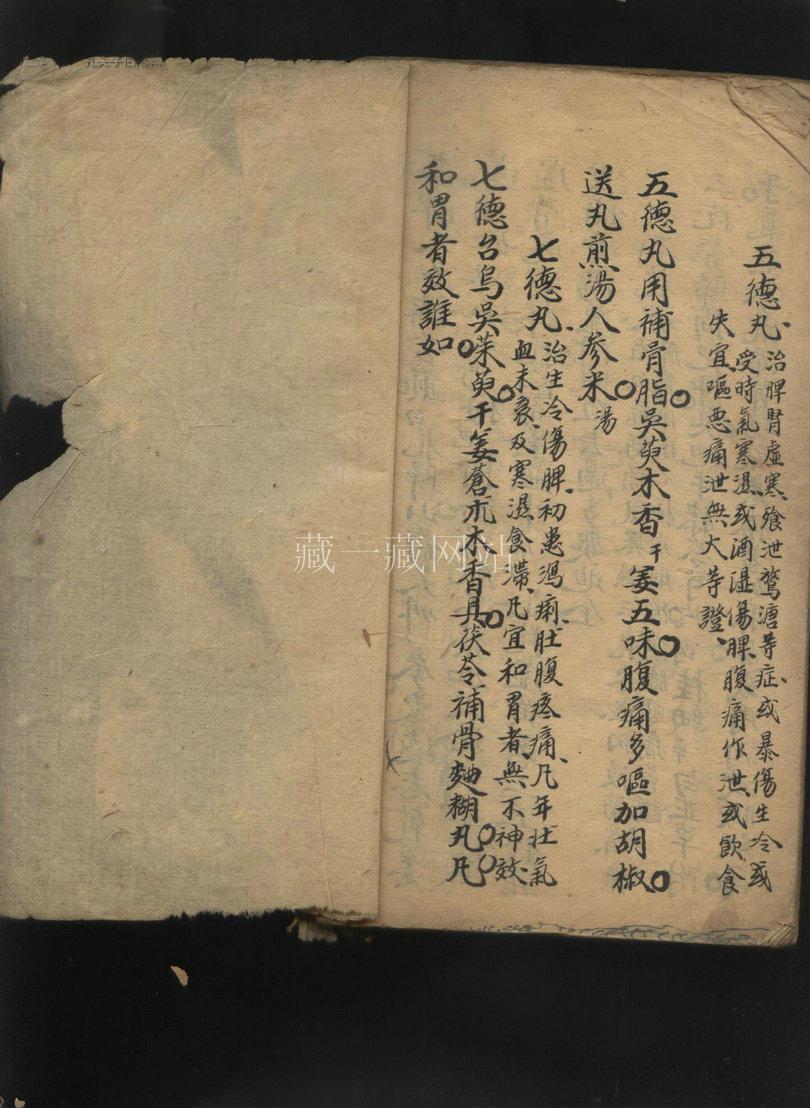 五德丸、治脾腎虛寒、飱泄鶩溏等症、或暴傷生冷或
受時氣寒濕或酒濕傷脾、腹痛作泄、或飲食
失宜嘔惡痛泄無大等證、
五德丸用補骨脂○吳萸木香干姜五味○腹痛多嘔加胡椒○
送丸煎湯人參米湯○
七德丸、治生冷傷脾、初患瀉痢、肚腹疼痛、凡年壯氣
血未衰、及寒濕食滯、凡宜和胃者、無不神效
七德台烏吳茱萸○干姜蒼朮木香具○茯苓補骨麯糊丸○凡
和胃者效誰如○
藏一藏网站